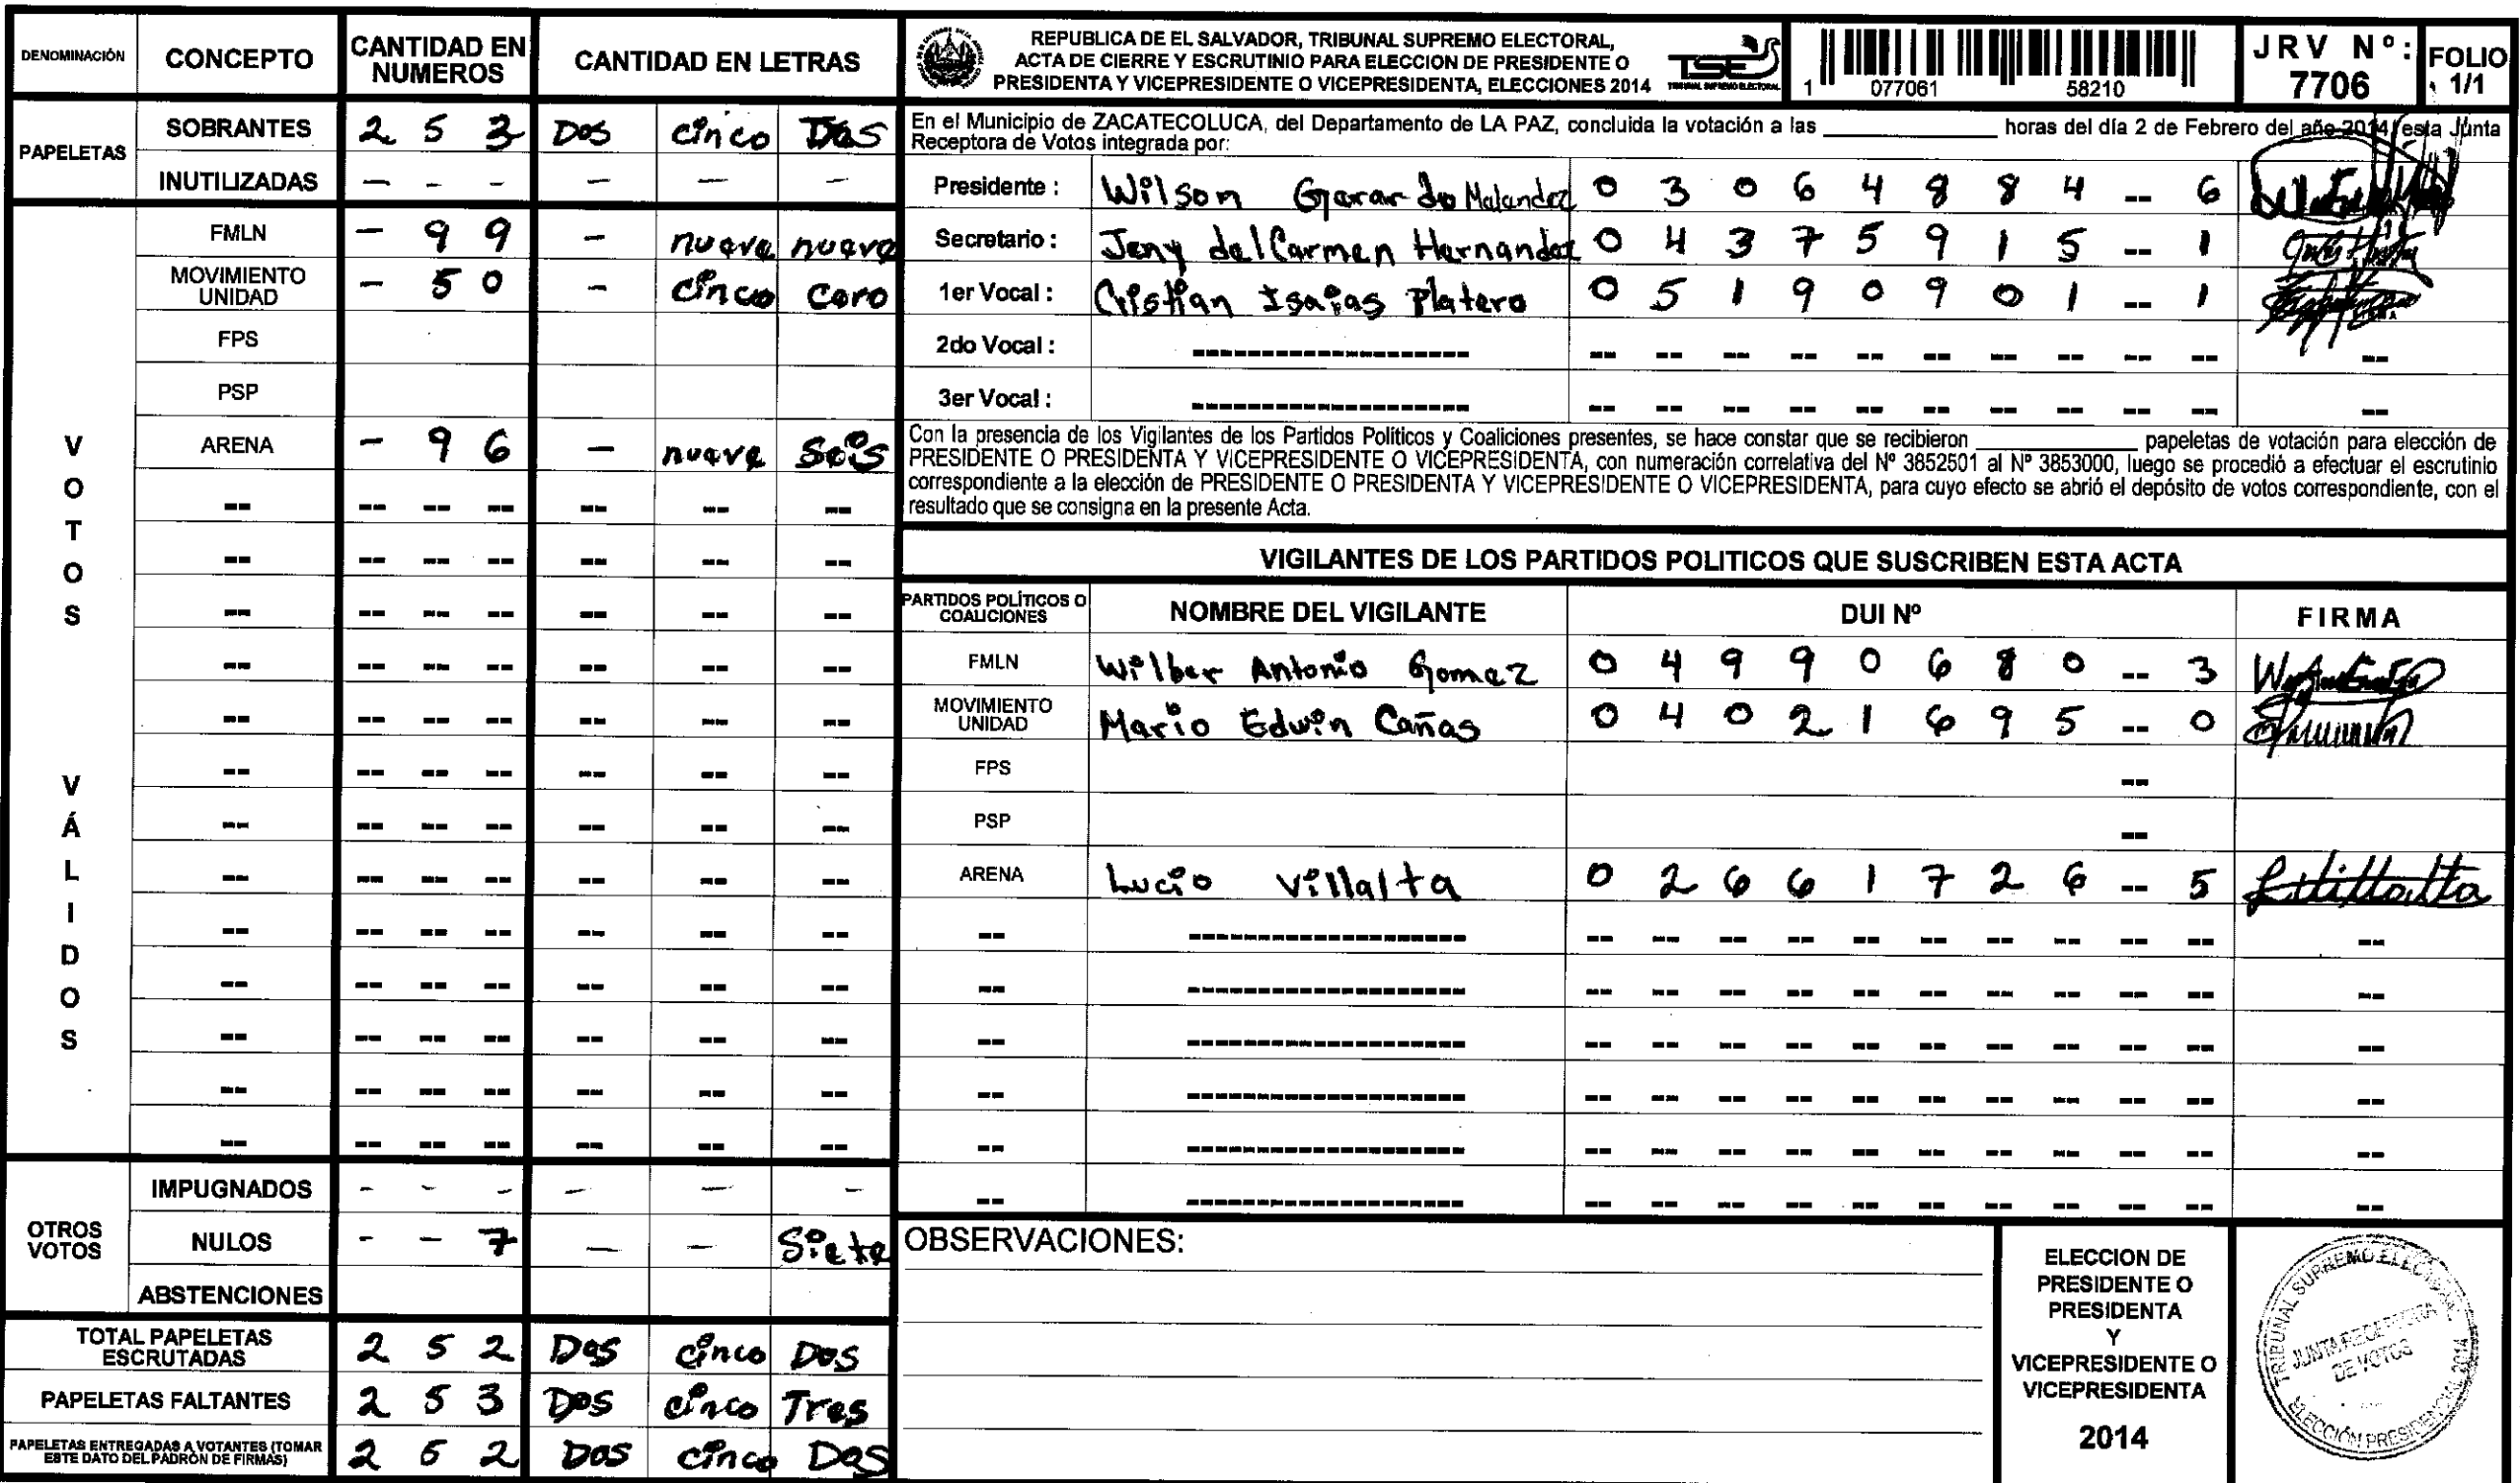 DENOMINACIÓN CONCEPTO CANTIDAD EN NUMEROS CANTIDAD EN LETRAS
PAPELETAS
SOBRANTES 2 5 3 Dos cinco Dos
INUTILIZADAS - - - - - -
VOTOS VÁLIDOS
FMLN - 9 9 - nueve nueve
MOVIMIENTO UNIDAD - 5 0 - cinco cero
FPS
PSP
ARENA - 9 6 - nueve Seis
-- -- -- -- -- -- --
-- -- -- -- -- -- --
-- -- -- -- -- -- --
-- -- -- -- -- -- --
-- -- -- -- -- -- --
-- -- -- -- -- -- --
-- -- -- -- -- -- --
-- -- -- -- -- -- --
-- -- -- -- -- -- --
-- -- -- -- -- -- --
-- -- -- -- -- -- --
-- -- -- -- -- -- --
-- -- -- -- -- -- --
OTROS VOTOS
IMPUGNADOS - - - - - -
NULOS - - 7 - - Siete
ABSTENCIONES
TOTAL PAPELETAS ESCRUTADAS 2 5 2 Dos cinco Dos
PAPELETAS FALTANTES 2 5 3 Dos cinco Tres
PAPELETAS ENTREGADAS A VOTANTES (TOMAR ESTE DATO DEL PADRÓN DE FIRMAS) 2 5 2 Dos cinco Dos
REPUBLICA DE EL SALVADOR, TRIBUNAL SUPREMO ELECTORAL,
ACTA DE CIERRE Y ESCRUTINIO PARA ELECCION DE PRESIDENTE O
PRESIDENTA Y VICEPRESIDENTE O VICEPRESIDENTA, ELECCIONES 2014
TSE
TRIBUNAL SUPREMO ELECTORAL
1 077061 58210
JRV Nº: 7706
FOLIO 1/1
En el Municipio de ZACATECOLUCA, del Departamento de LA PAZ, concluida la votación a las ____________ horas del día 2 de Febrero del año 2014, esta Junta
Receptora de Votos integrada por:
Presidente : Wilson Gerardo 0 3 0 6 4 8 8 4 -- 6
Secretario : Jeny del Carmen Hernandez 0 4 3 7 5 9 1 5 -- 1
1er Vocal : Cristian Isaias Platero 0 5 1 9 0 9 0 1 -- 1
2do Vocal : -------------------- -- -- -- -- -- -- -- -- -- -- --
3er Vocal : -------------------- -- -- -- -- -- -- -- -- -- -- --
Con la presencia de los Vigilantes de los Partidos Políticos y Coaliciones presentes, se hace constar que se recibieron ____________ papeletas de votación para elección de
PRESIDENTE O PRESIDENTA Y VICEPRESIDENTE O VICEPRESIDENTA, con numeración correlativa del Nº 3852501 al Nº 3853000, luego se procedió a efectuar el escrutinio
correspondiente a la elección de PRESIDENTE O PRESIDENTA Y VICEPRESIDENTE O VICEPRESIDENTA, para cuyo efecto se abrió el depósito de votos correspondiente, con el
resultado que se consigna en la presente Acta.
VIGILANTES DE LOS PARTIDOS POLITICOS QUE SUSCRIBEN ESTA ACTA
PARTIDOS POLÍTICOS O COALICIONES NOMBRE DEL VIGILANTE DUI Nº FIRMA
FMLN Wilber Antonio Gomez 0 4 9 9 0 6 8 0 -- 3
MOVIMIENTO UNIDAD Mario Edwin Cañas 0 4 0 2 1 6 9 5 -- 0
FPS --
PSP --
ARENA Lucio Villalta 0 2 6 6 1 7 2 6 -- 5
-- -------------------- -- -- -- -- -- -- -- -- -- -- --
-- -------------------- -- -- -- -- -- -- -- -- -- -- --
-- -------------------- -- -- -- -- -- -- -- -- -- -- --
-- -------------------- -- -- -- -- -- -- -- -- -- -- --
-- -------------------- -- -- -- -- -- -- -- -- -- -- --
-- -------------------- -- -- -- -- -- -- -- -- -- -- --
OBSERVACIONES:
ELECCION DE
PRESIDENTE O
PRESIDENTA
Y
VICEPRESIDENTE O
VICEPRESIDENTA
2014
TRIBUNAL SUPREMO ELECTORAL
JUNTA RECEPTORA
DE VOTOS
ELECCIÓN PRESIDENCIAL 2014